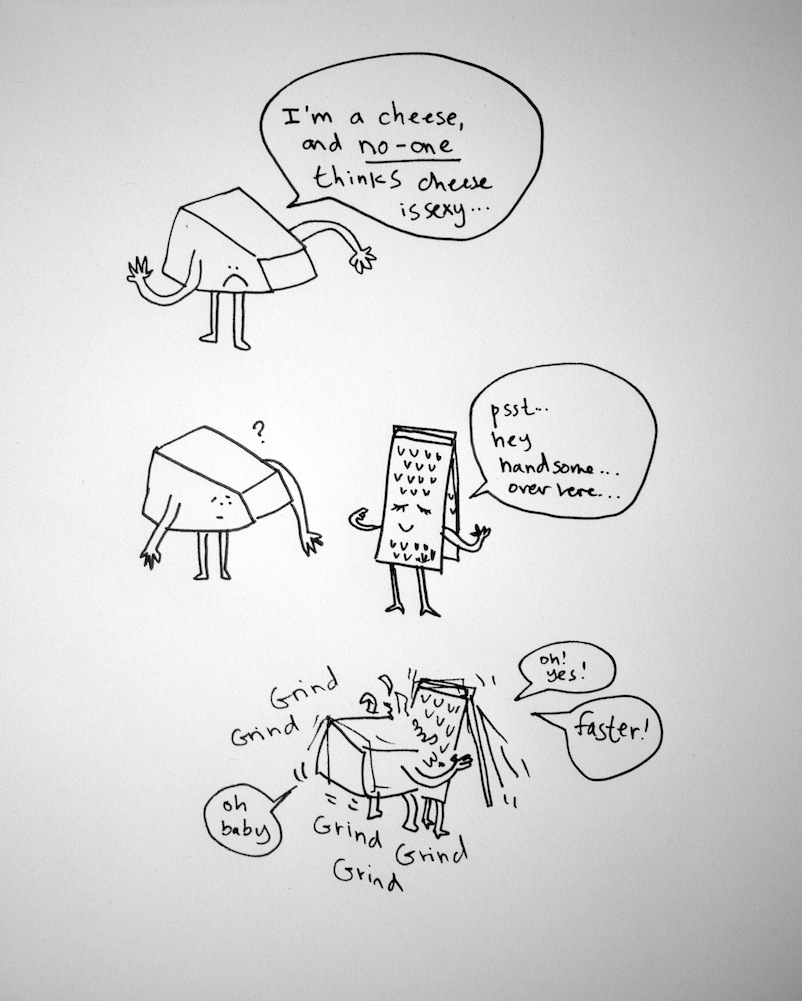 I'm a cheese,
and no-one
thinks cheese
is sexy...
?
psst...
hey
handsome...
over here...
Grind
Grind
oh!
yes!
faster!
oh
baby
Grind
Grind
Grind